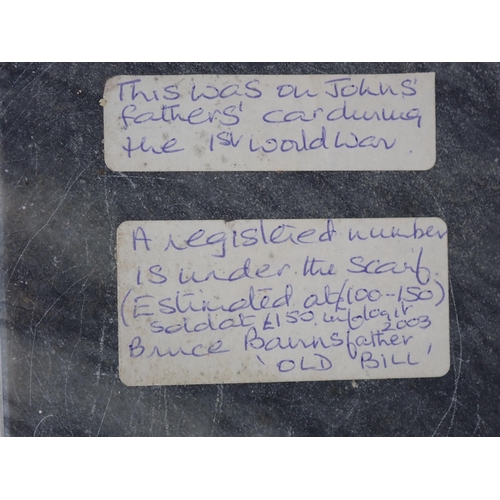 This was on Johns'
fathers' car during
the 1st world war
A registered number
is under the scarf.
(Estimated at £100-150)
sold at £150
2003
Bruce Bairnsfather
'OLD BILL'